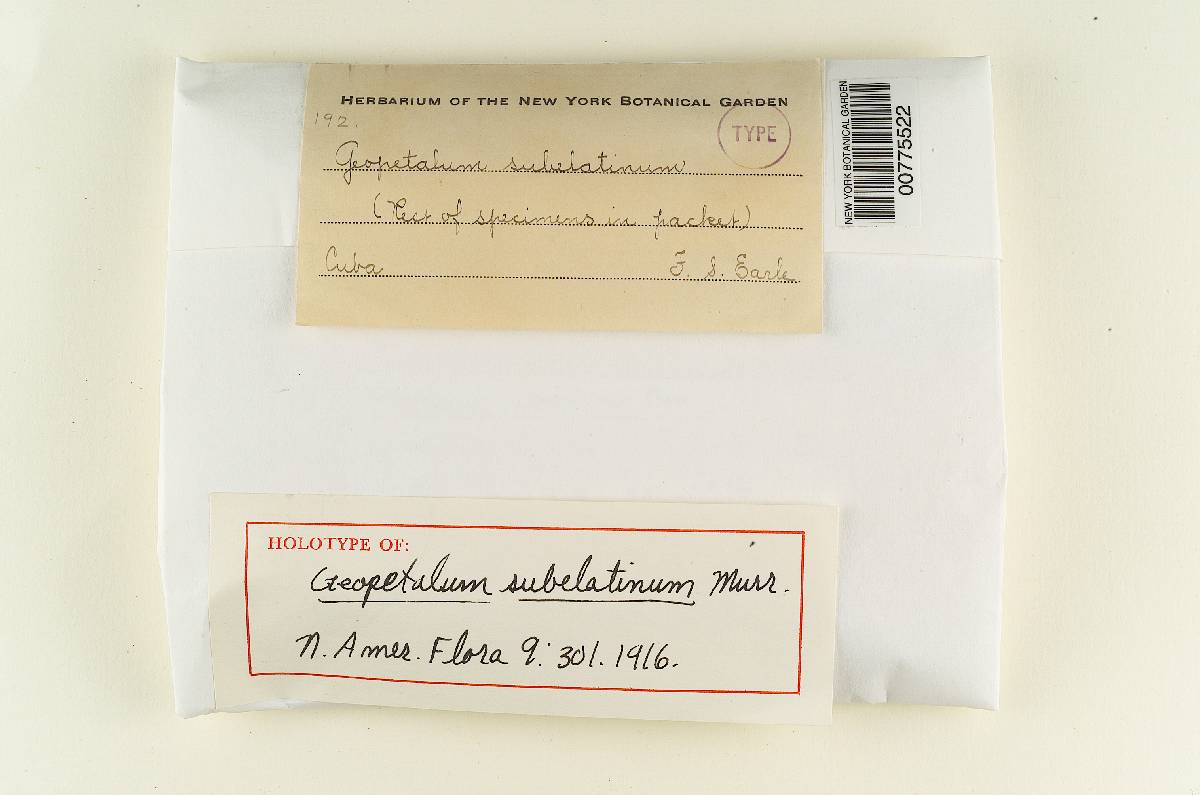 HERBARIUM OF THE NEW YORK BOTANICAL GARDEN
192.
TYPE
Geopetalum subelatinum
(Rest of specimens in packet)
Cuba F. S. Earle
NEW YORK BOTANICAL GARDEN
00775522
HOLOTYPE OF:
Geopetalum subelatinum Murr.
N. Amer. Flora 9: 301. 1916.